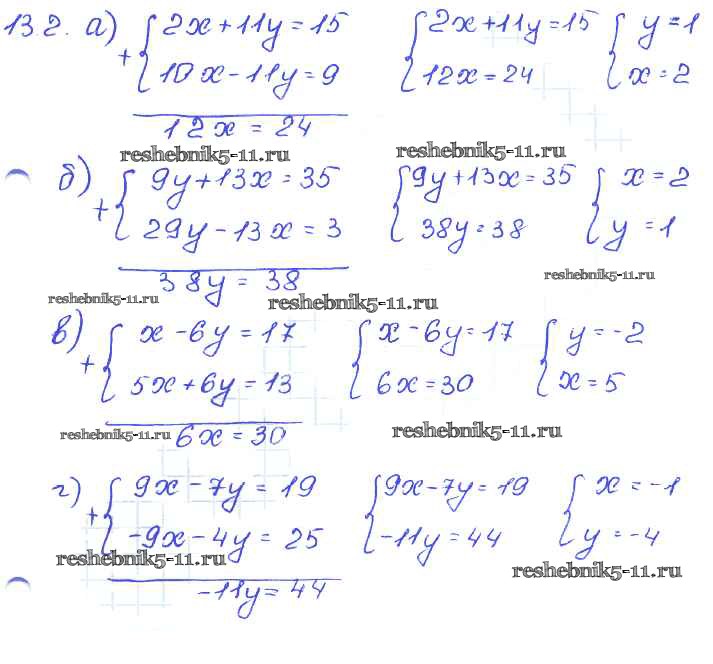 13.2. а) 2x+11y=15 2x+11y=15 y=1
+ 10x-11y=9 12x=24 x=2
12x=24
reshebnik5-11.ru reshebnik5-11.ru
б) 9y+13x=35 9y+13x=35 x=2
+ 29y-13x=3 38y=38 y=1
reshebnik5-11.ru
38y=38
reshebnik5-11.ru reshebnik5-11.ru
в) x-6y=17 x-6y=17 y=-2
+ 5x+6y=13 6x=30 x=5
reshebnik5-11.ru 6x=30 reshebnik5-11.ru
г) 9x-7y=19 9x-7y=19 x=-1
+ -9x-4y=25 -11y=44 y=-4
reshebnik5-11.ru reshebnik5-11.ru
-11y=44